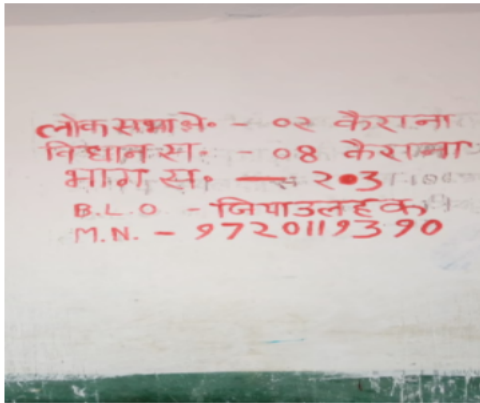 लोक सभा क्षे॰ - ०२ कैराना
विधान स॰ - ०8 कैराना
भाग स॰ - २०3
B.L.O - जियाउलहक
M.N. - 9720119390